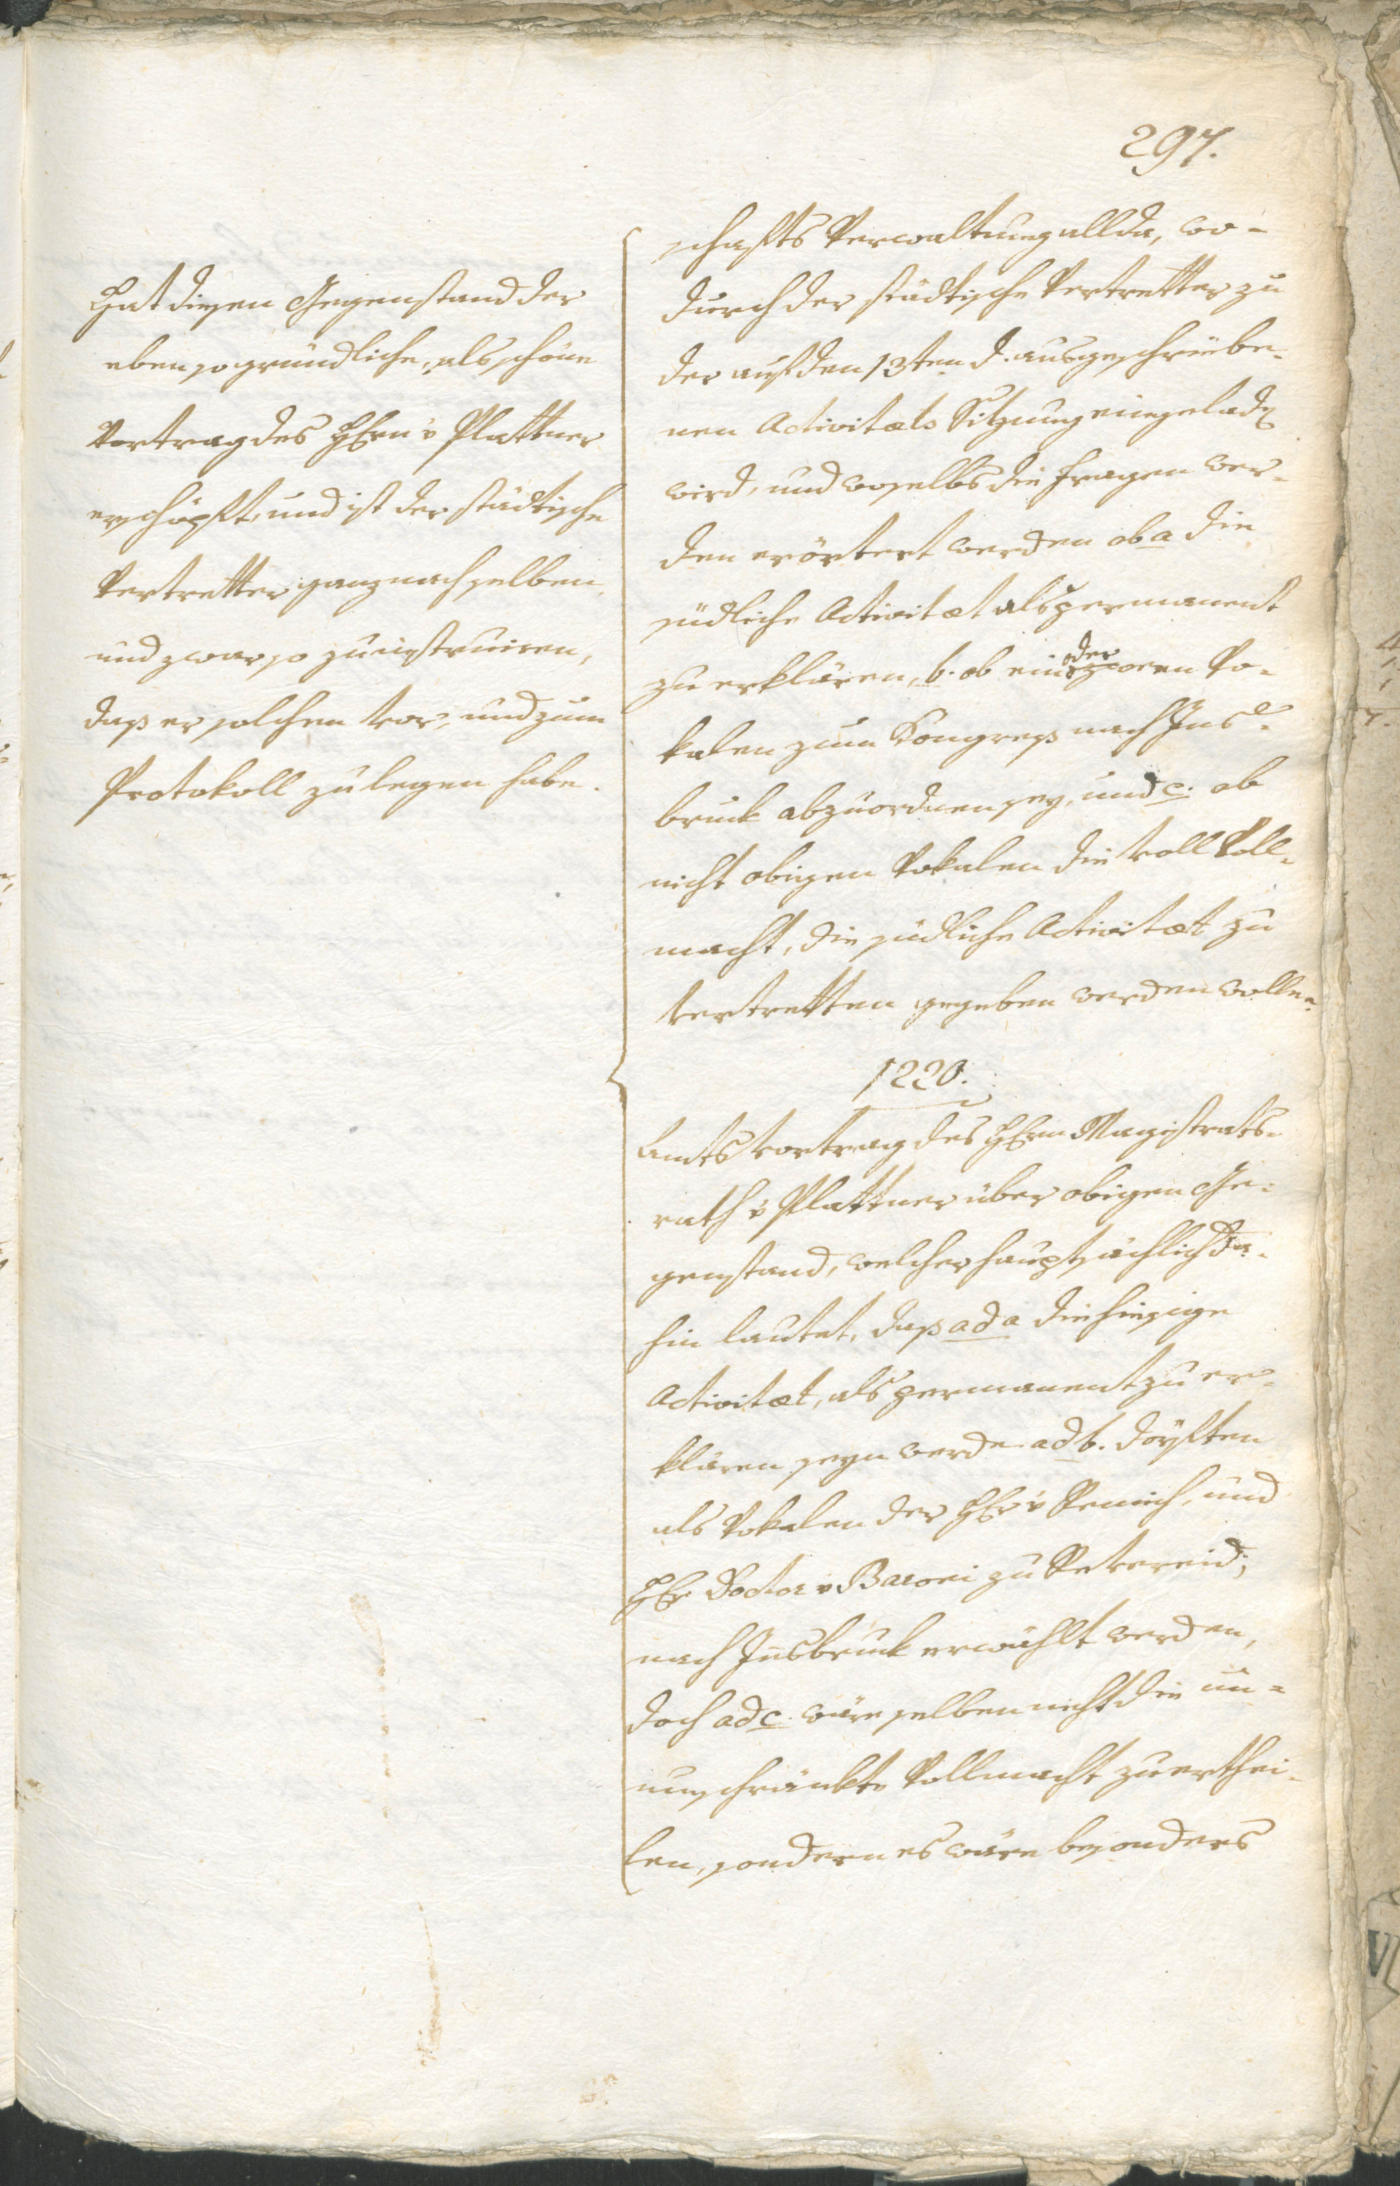 297.
Hat diesen Gegenstand der
eben so gründliche, als schöne
Vortrag des HErn v Plattner
erschöpft, und ist der städtische
Vertretter ganz nach selben,
und zwar so zu instruiren,
daß er solchen vor, und zum
Protokoll zu legen habe.
schafts Verwaltung allda, wo-
durch der städtische Vertretter zu
der auf den 13ten d. ausgeschriebe-
nen Activitæts Sitzung eingeladen
wird, und woselbs die Fragen wer-
den erörtert werden ob a die
südliche Activitæt als permanent
zu erklären, b. ob ein oder zween Vo-
kalen zum Kongreß nach Ins-
bruck abzuordnen sey, und c. ob
nicht obigen Vokalen die voll Voll-
macht, die südliche Activitæt zu
vertretten gegeben werden wolle.
1220.
Amts Vortrag des HErrn Magistrats-
rath v Plattner über obigen Ge-
genstand, welcher hauptsächlich da-
hin lautet, daß ad a die hiesige
Activitæt, als permanent zu er-
klären seyn werde. ad b. dörften
als Vokalen der HEr v Remich, und
HEr Doctor v Baroni zu
nach Insbruck erwählt werden,
doch ad c. wäre selben nicht die un-
umschränkte Vollmacht zu erthei-
len, sondern es wäre besonders